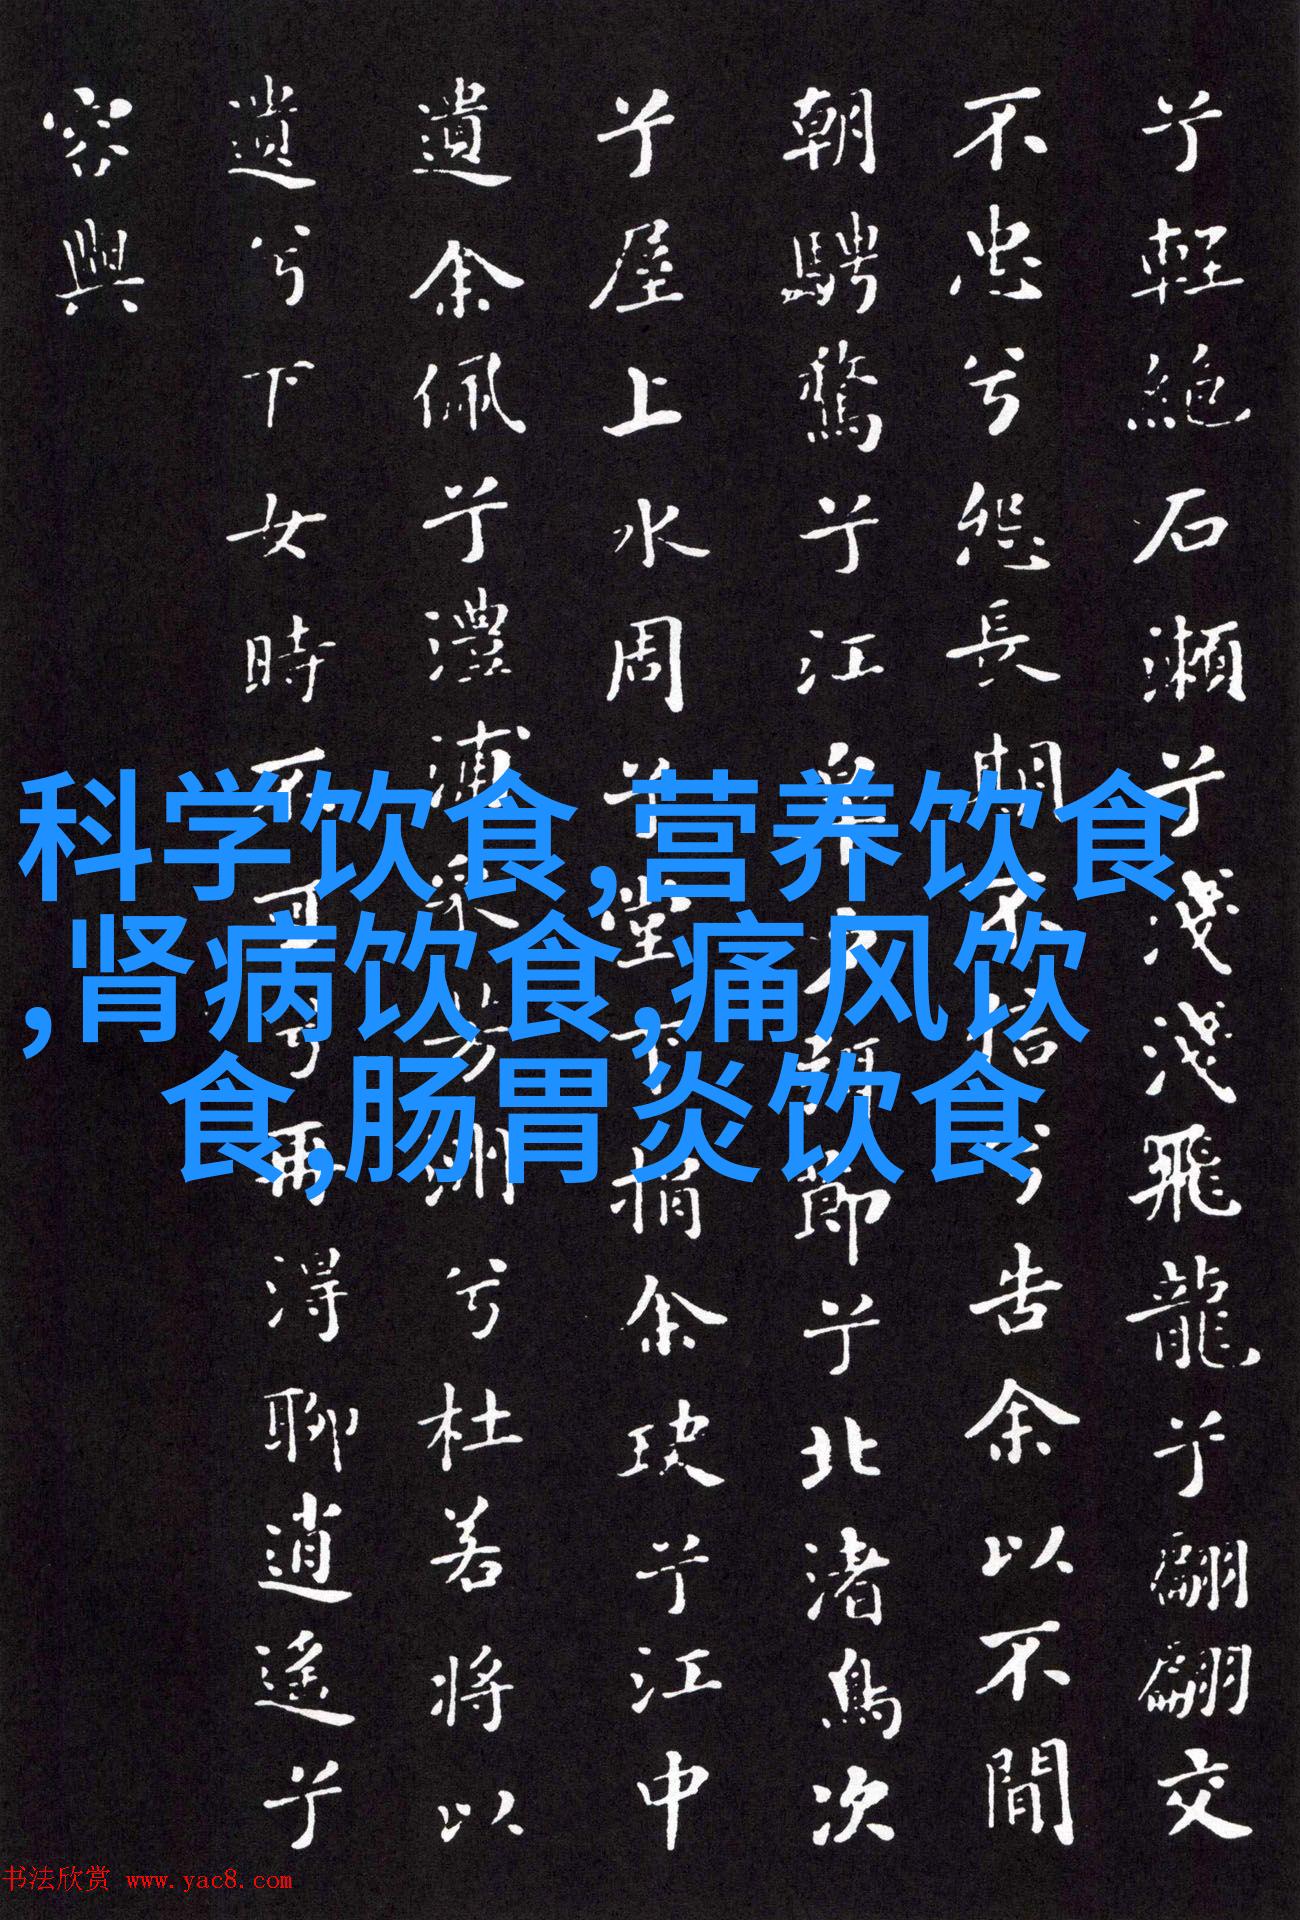 兮輕絕石瀨兮淺淺飛龍兮翩翩交
不忠兮怨長期不信兮告余以不閒
朝騁騖兮江皋夕弭節兮北渚鳥次
兮屋上水周兮堂下捐余玦兮江中
遺余佩兮澧浦采芳洲兮杜若將以
遺兮下女時不可兮再得聊逍遙兮
容與
科学饮食,营养饮食
,肾病饮食,痛风饮
食,肠胃炎饮食
书法欣赏 www.yac8.com